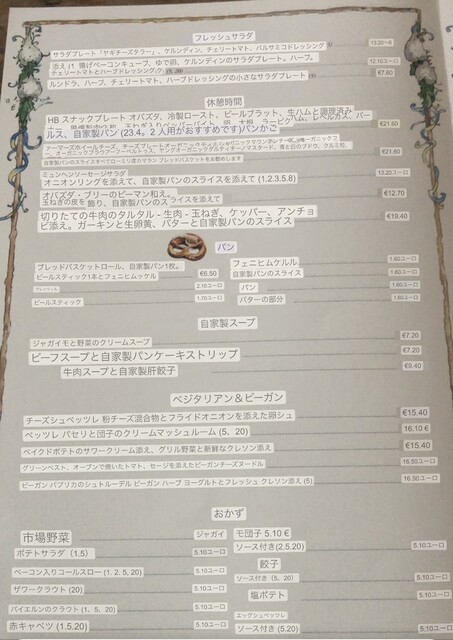 フレッシュサラダ
サラダプレート「ヤギチーズタラー」、ケルンディン、チェリートマト、バルサミコドレッシング
添え (1 揚げベーコンキューブ、ゆで卵、ケルンディンのサラダプレート。ハーブ。 12.10ユーロ
チェリートマトとハーブドレッシング
ルンドラ、ハーブ、チェリートマト、ハーブドレッシングの小さなサラダプレート €7.60
休憩時間
HB スナックプレート オバズダ、冷製ロースト、ビールブラット、生ハムと調理済み
ルス、自家製パン (23.4。2 人用がおすすめです)パンかご €21.60
€21.60
自家製パンのスライスすべてローミリ産カマラン ブレッドバスケットをお勧めします
ミュンヘンソーセージサラダ 13.20ユーロ
オニオンリングを添えて、自家製パンのスライスを添えて (1.2.3.5.8)
オバズダ・ブリーのピーマン和え。 €12.70
玉ねぎの皮を飾り、自家製パンのスライスを添えて
切りたての牛肉のタルタル - 生肉 - 玉ねぎ、ケッパー、アンチョ €19.40
ビ添え。ガーキンと生卵黄、バターと自家製パンのスライス
パン
ブレッドバスケットロール、自家製パン1枚。
ビールスティック1本とフェニヒムッケル €6.50
2.10ユーロ
ビールスティック 1.70ユーロ
フェニヒムケルル 1.60ユーロ
自家製パンのスライス 1.60ユーロ
パン 1.60ユーロ
バターの部分 1.60ユーロ
自家製スープ
ジャガイモと野菜のクリームスープ €7.20
ビーフスープと自家製パンケーキストリップ €7.20
牛肉スープと自家製肝餃子 €9.40
ベジタリアン＆ビーガン
チーズシュペッツレ 粉チーズ混合物とフライドオニオンを添えた卵シュ €15.40
ペッツレ パセリと団子のクリームマッシュルーム (5、20) 16.10 €
ベイクドポテトのサワークリーム添え、グリル野菜と新鮮なクレソン添え €15.40
グリーンペスト、オーブンで焼いたトマト、セージを添えたビーガンチーズヌードル 16.50ユーロ
ビーガン パプリカのシュトルーデル ビーガン ハーブ ヨーグルトとフレッシュ クレソン添え (5) 16.50ユーロ
おかず
市場野菜 ジャガイ
ポテトサラダ (1.5) 5.10ユーロ
ベーコン入りコールスロー (1. 2. 5, 20) 5.10ユーロ
ザワークラウト (20) 5.10ユーロ
バイエルンのクラウト (1、5、20) 5.10ユーロ
赤キャベツ (1.5.20) 5.10ユーロ
モ団子 5.10 €
ソース付き(2.5.20) 5.10ユーロ
餃子
ソース付き (5、20) 5.10ユーロ
塩ポテト 5.10ユーロ
エッグシュペッツレ
ソース付き (5.20) 5.10ユーロ